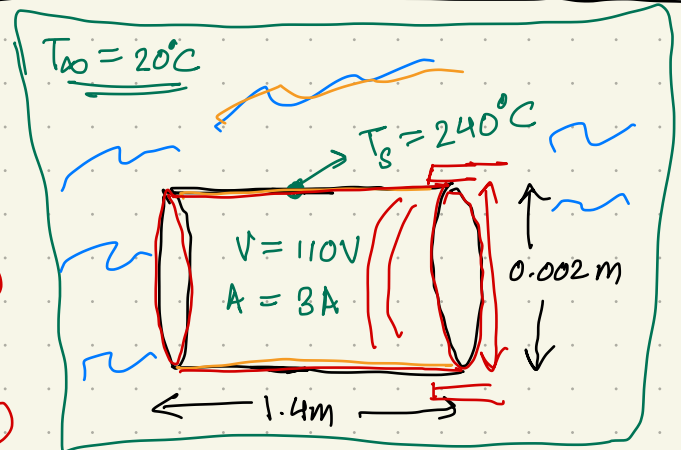 T∞ = 20°C
Ts = 240°C
V = 110V
A = 3A
0.002m
1.4m